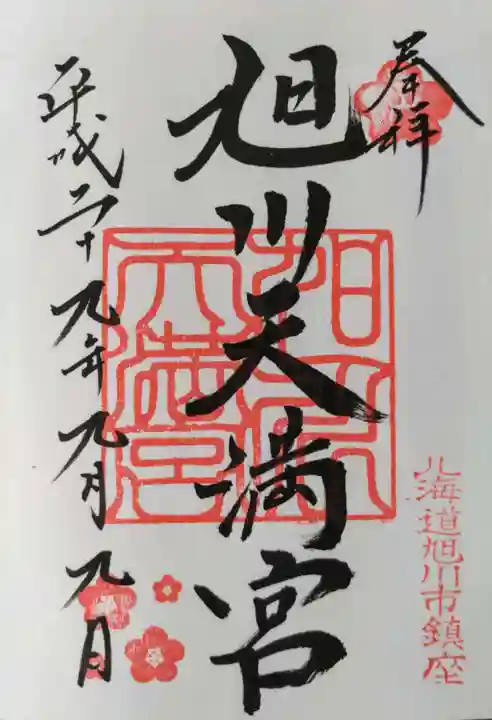 奉拝
北海道旭川市鎮座
旭川天満宮
平成二十九年九月九日